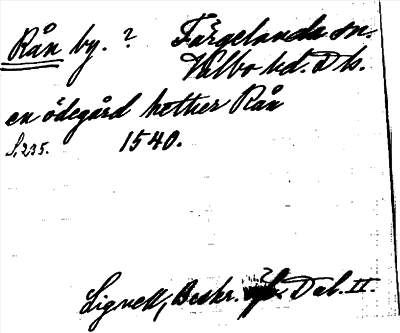 Rån by. ? Färgelanda sn.
Valbo hd. Ds.
en ödegård hether Rån
S. 235. 1540.
Lignell, Beskr. öfv. Dal. II.